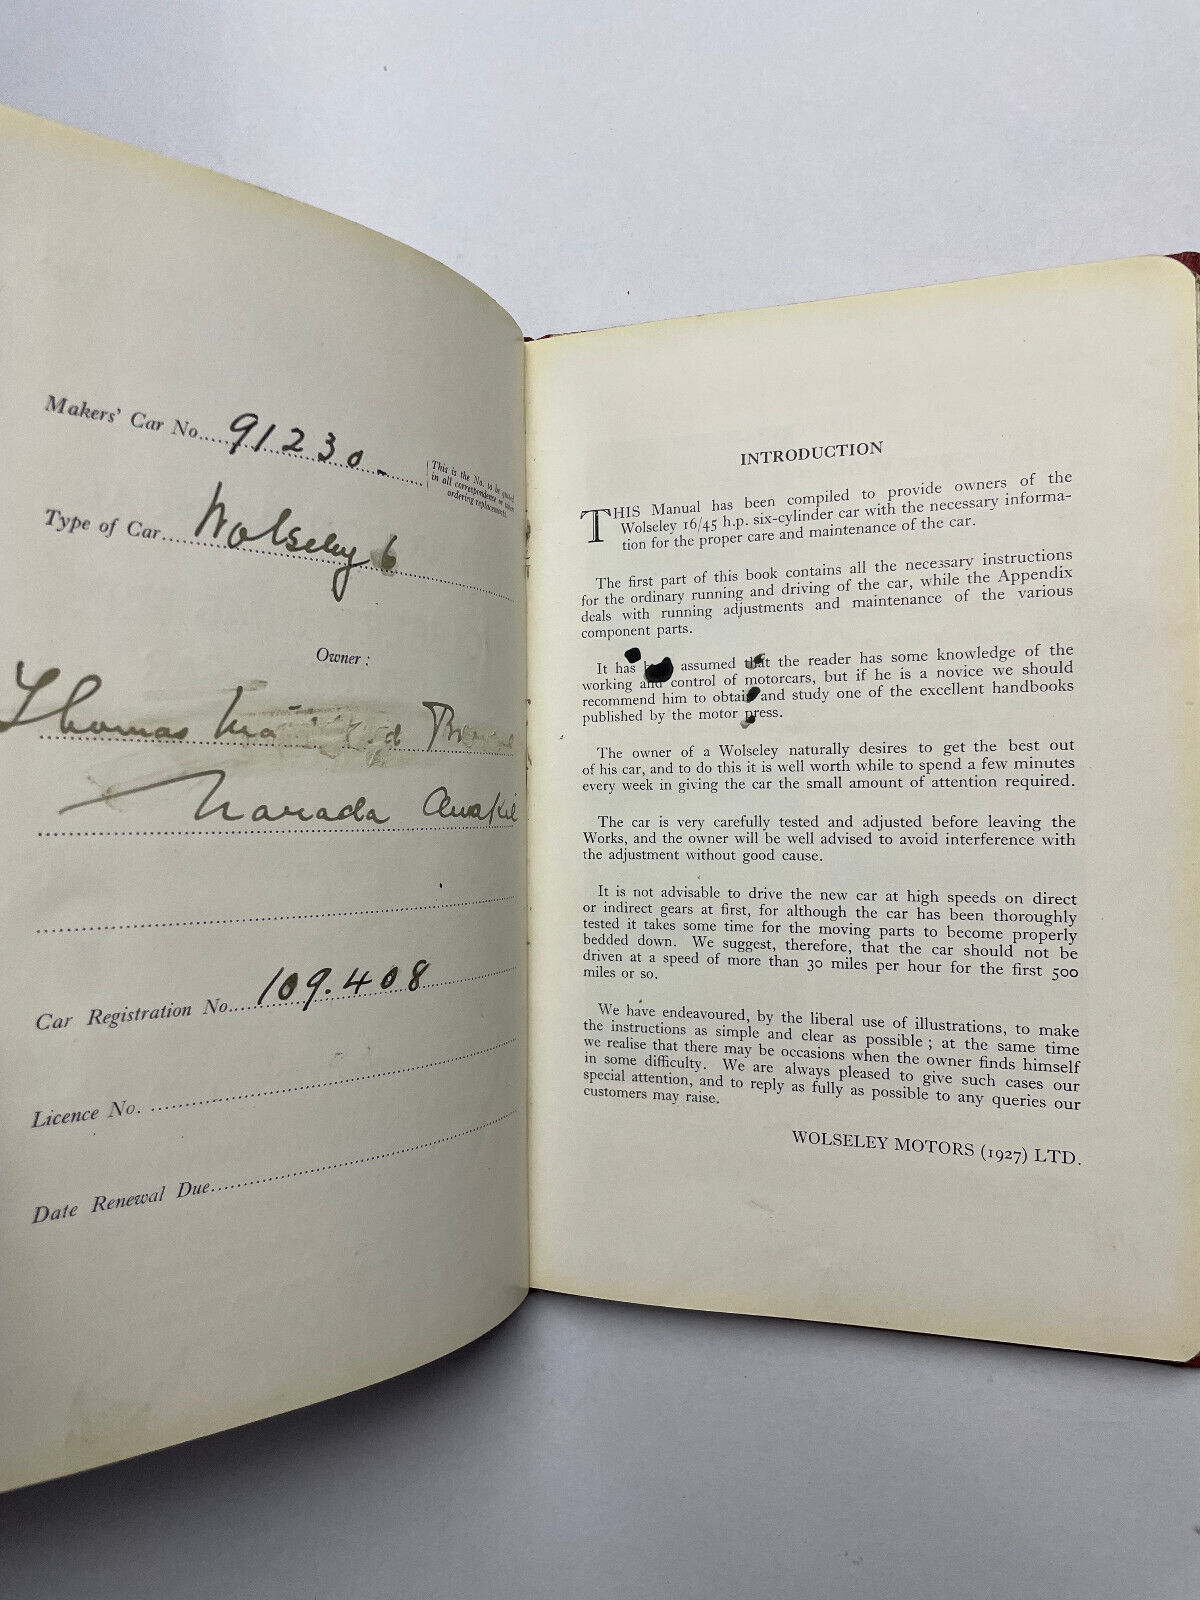 Makers' Car No. 91230
This is the No. to be quoted
in all correspondence or when
ordering replacements.
Type of Car Wolseley 6
Owner :
Thomas
Car Registration No. 109.408
Licence No.
Date Renewal Due
INTRODUCTION
THIS Manual has been compiled to provide owners of the
Wolseley 16/45 h.p. six-cylinder car with the necessary informa-
tion for the proper care and maintenance of the car.
The first part of this book contains all the necessary instructions
for the ordinary running and driving of the car, while the Appendix
deals with running adjustments and maintenance of the various
component parts.
It has assumed that the reader has some knowledge of the
working and control of motorcars, but if he is a novice we should
recommend him to obtain and study one of the excellent handbooks
published by the motor press.
The owner of a Wolseley naturally desires to get the best out
of his car, and to do this it is well worth while to spend a few minutes
every week in giving the car the small amount of attention required.
The car is very carefully tested and adjusted before leaving the
Works, and the owner will be well advised to avoid interference with
the adjustment without good cause.
It is not advisable to drive the new car at high speeds on direct
or indirect gears at first, for although the car has been thoroughly
tested it takes some time for the moving parts to become properly
bedded down. We suggest, therefore, that the car should not be
driven at a speed of more than 30 miles per hour for the first 500
miles or so.
We have endeavoured, by the liberal use of illustrations, to make
the instructions as simple and clear as possible ; at the same time
we realise that there may be occasions when the owner finds himself
in some difficulty. We are always pleased to give such cases our
special attention, and to reply as fully as possible to any queries our
customers may raise.
WOLSELEY MOTORS (1927) LTD.